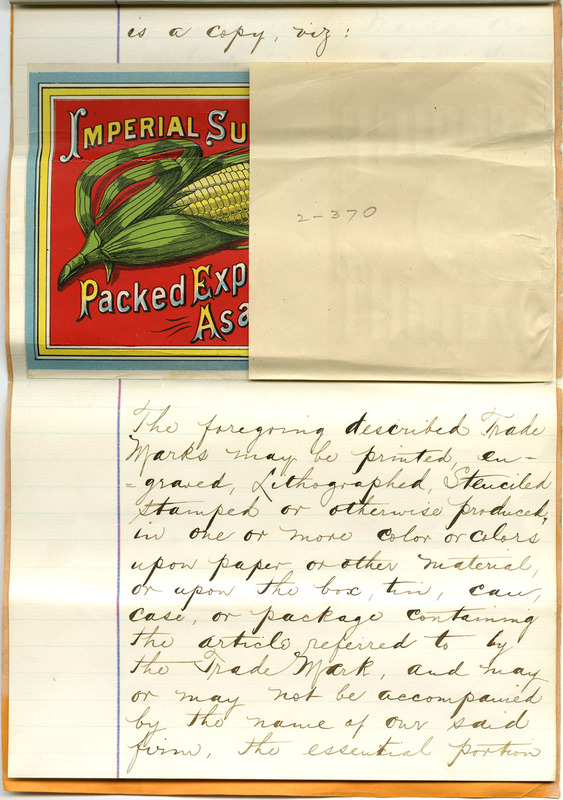 is a copy, viz:
IMPERIAL SU
2-370
Packed Exp
Asa
The foregoing described Trade
Marks may be printed, en-
-graved, Lithographed, Stenciled
Stamped or otherwise produced,
in one or more color or colors
upon paper or other material,
or upon the box, tin, can,
case, or package containing
the article referred to by
the Trade Mark, and may
or may not be accompanied
by the name of our said
firm, the essential portion